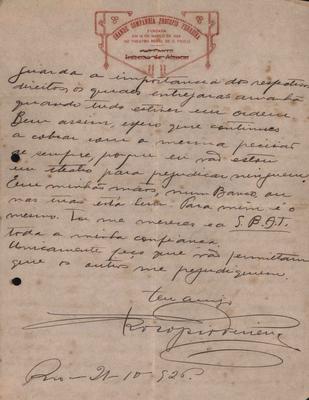 GRANDE COMPANHIA PROCOPIO FERREIRA
FUNDADA
EM 14 DE MARÇO DE 1924
NO THEATRO ROYAL DE S. PAULO
Guarda a importancia dos respectivos
direitos, os quaes entregarás amanhã
quando tudo estiver em ordem.
Bem assim, espero que continues
a cobrar com a mesma precisão
de sempre, porque eu não estou
em theatro para prejudicar ninguem.
Em minhas mãos, num Banco, ou
nas tuas está bem. Para mim é o
mesmo. Tu me mereces e a S.B.A.T.
toda a minha confiança.
Unicamente peço que não permittam
que os outros me prejudiquem.
teu amigo
Procopio Ferreira
Rio - 21-10-926.